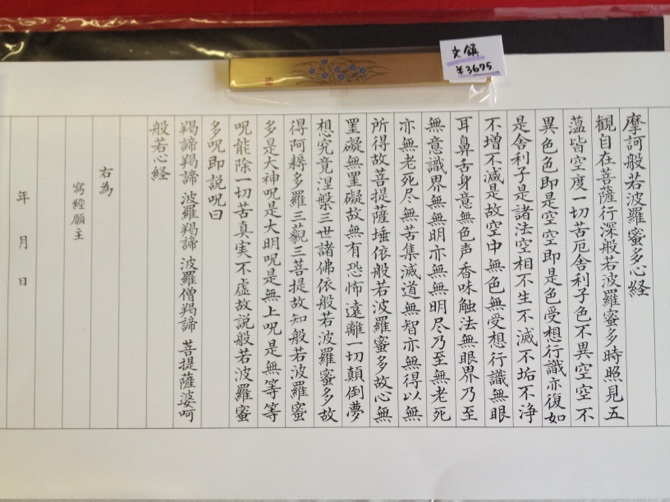 文鎮
¥3675
摩訶般若波羅蜜多心経
観自在菩薩行深般若波羅蜜多時照見五
蘊皆空度一切苦厄舎利子色不異空空不
異色色即是空空即是色受想行識亦復如
是舎利子是諸法空相不生不滅不垢不浄
不増不減是故空中無色無受想行識無眼
耳鼻舌身意無色声香味触法無眼界乃至
無意識界無無明亦無無明尽乃至無老死
亦無老死尽無苦集滅道無智亦無得以無
所得故菩提薩埵依般若波羅蜜多故心無
罣礙無罣礙故無有恐怖遠離一切顛倒夢
想究竟涅槃三世諸佛依般若波羅蜜多故
得阿耨多羅三藐三菩提故知般若波羅蜜
多是大神呪是大明呪是無上呪是無等等
呪能除一切苦真実不虚故説般若波羅蜜
多呪即説呪曰
羯諦羯諦 波羅羯諦 波羅僧羯諦 菩提薩婆呵
般若心経
右為
寫經願主
年 月 日